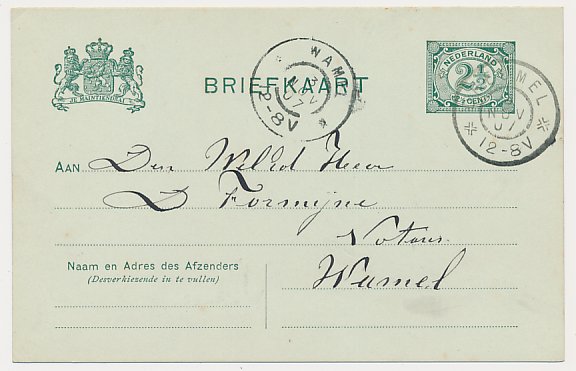 JE MAINTIENDRAI
BRIEFKAART
NEDERLAND
2½
2½ CENT
WAMEL
NOV
07
12-8V
WAMEL
NOV
07
12-8V
AAN Den WelEd Heer
D Formijne
Notaris
Wamel
Naam en Adres des Afzenders
(Desverkiezende in te vullen)